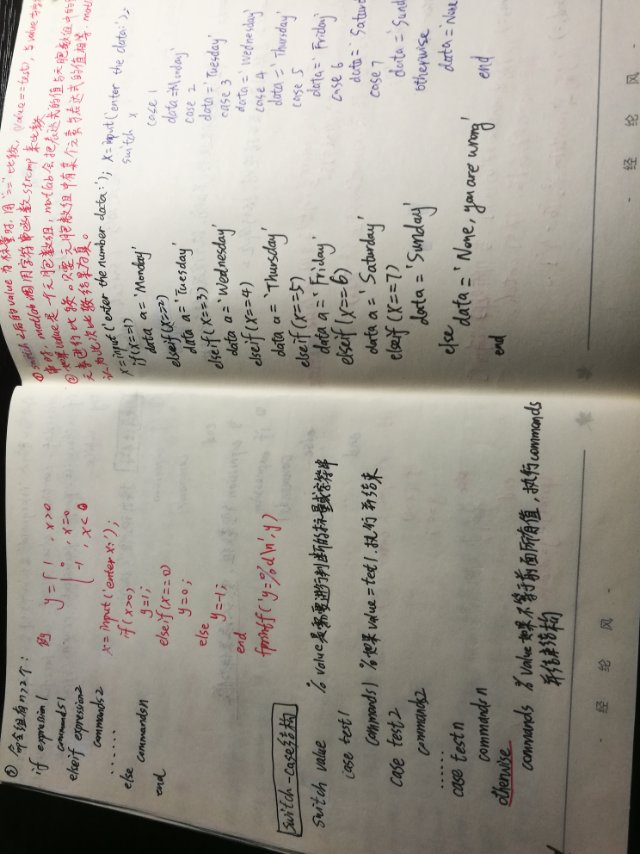 ② 命令组有n>2个:
if expression1
commands1
elseif expression2
commands2
......
else
commandsn
end
例 y={1 , x>0
0 , x=0
-1 , x<0
x=input('enter x:');
if(x>0)
y=1;
elseif(x==0)
y=0;
else
y=-1;
end
fprintf('y=%d\n',y)
switch-case结构
switch value % value是需要进行判断的标量或字符串
case test1
commands1 %如果value=test1,执行 并结束
case test2
commands2
......
case testn
commandsn
otherwise
commands % value如果不等于前面所有值,执行commands
并结束结构
x=input('enter the number data:');
if(x==1)
data a='Monday'
elseif(x==2)
data a='Tuesday'
elseif(x==3)
data a='Wednesday'
elseif(x==4)
data a='Thursday'
elseif(x==5)
data a='Friday'
elseif(x==6)
data a='Saturday'
elseif(x==7)
data='Sunday'
else
data='None, you are wrong'
end
x=input('enter the data:');
switch x
case 1
data='Monday'
case 2
data='Tuesday'
case 3
data='Wednesday'
case 4
data='Thursday'
case 5
data='Friday'
case 6
data='Saturd
case 7
data='Sund
otherwise
data='None
end
经 纶 风
经 纶 风